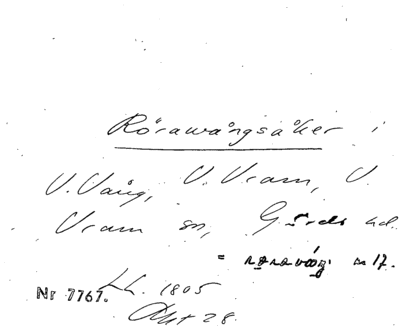 Rörawångsåker i
V. Vång, V. Vram, V.
Vram sn, Gärds hd.
= rørovåg n 17.
LL. 1805
Nr 7767.
Akt 28